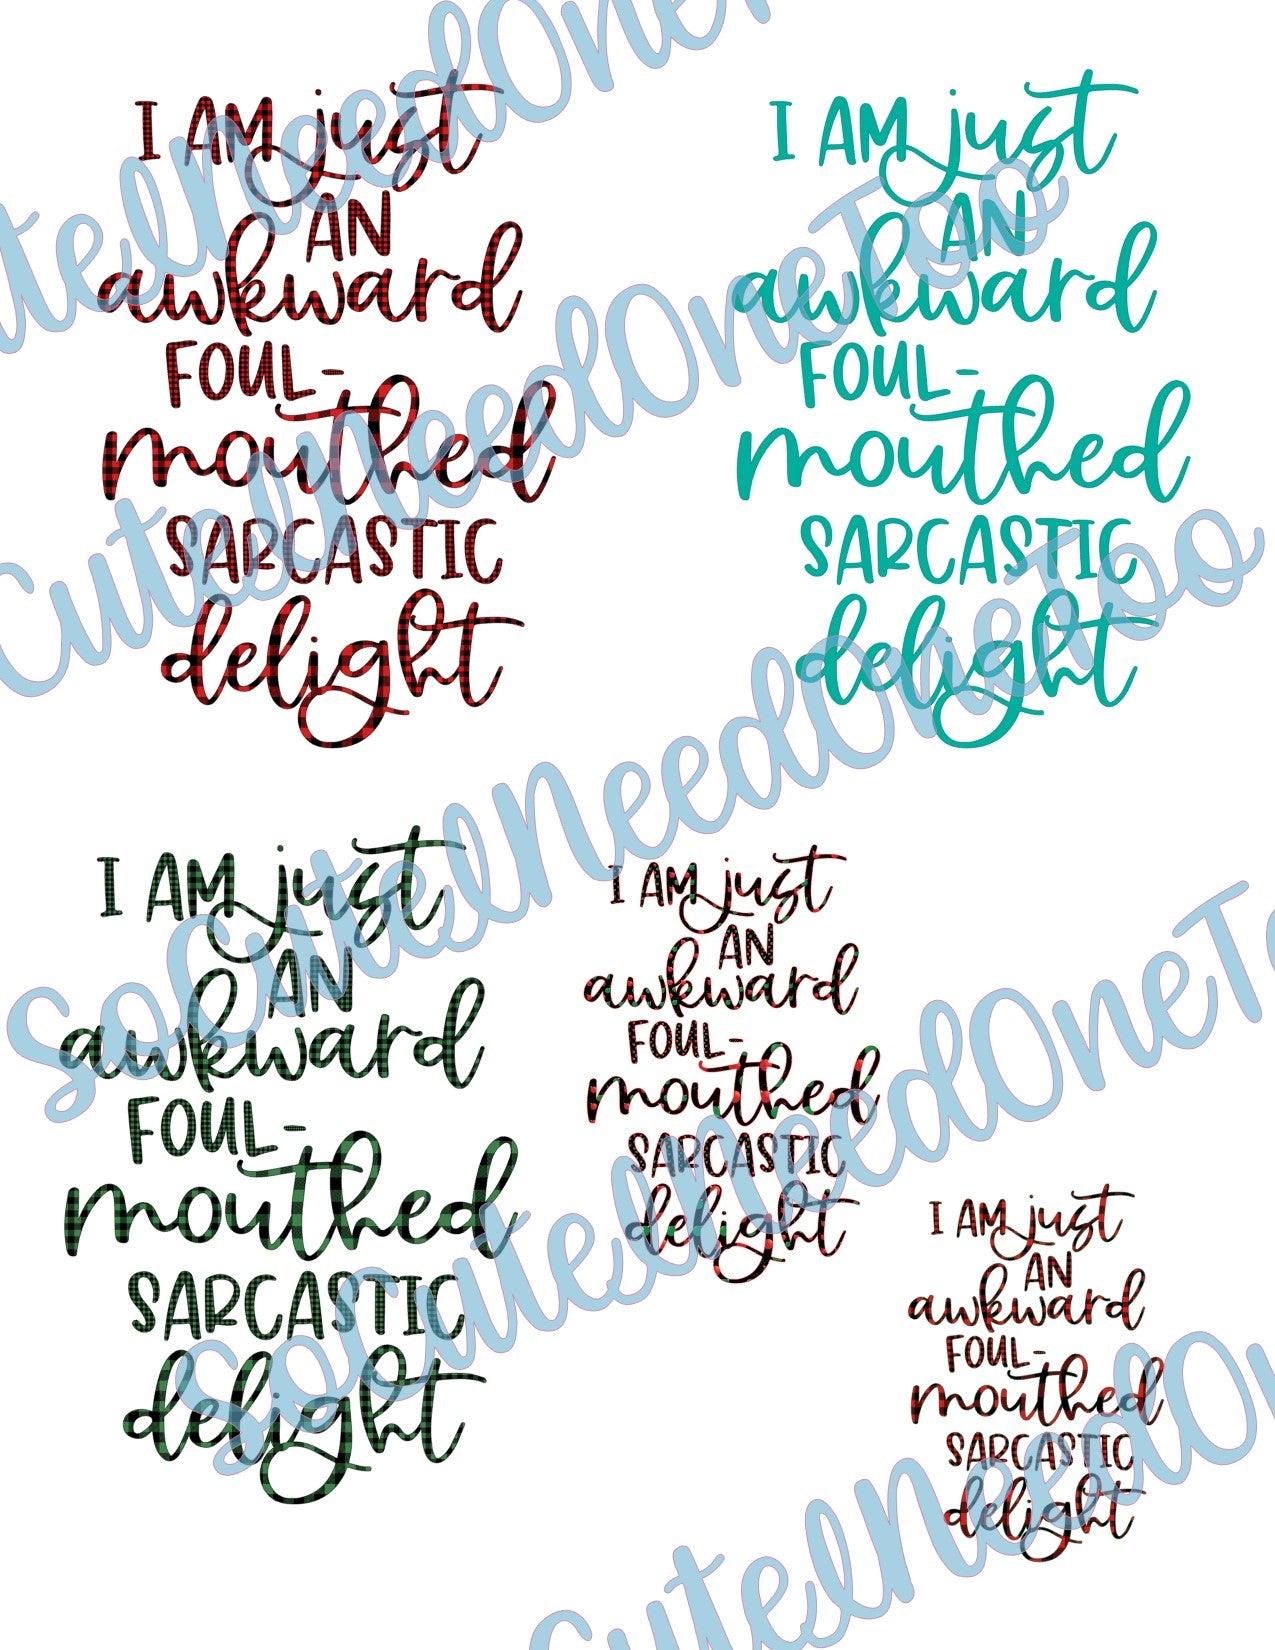 I AM just
AN
awkward
FOUL-
mouthed
SARCASTIC
delight
I AM just
AN
awkward
FOUL-
mouthed
SARCASTIC
delight
I AM just
AN
awkward
FOUL-
mouthed
SARCASTIC
delight
I AM just
AN
awkward
FOUL-
mouthed
SARCASTIC
delight
I AM just
AN
awkward
FOUL-
mouthed
SARCASTIC
delight
uteINeedOne
CuteINeedOneToo
SoCuteINeedOneToo
SoCuteINeedOneTo
CuteINeedOn